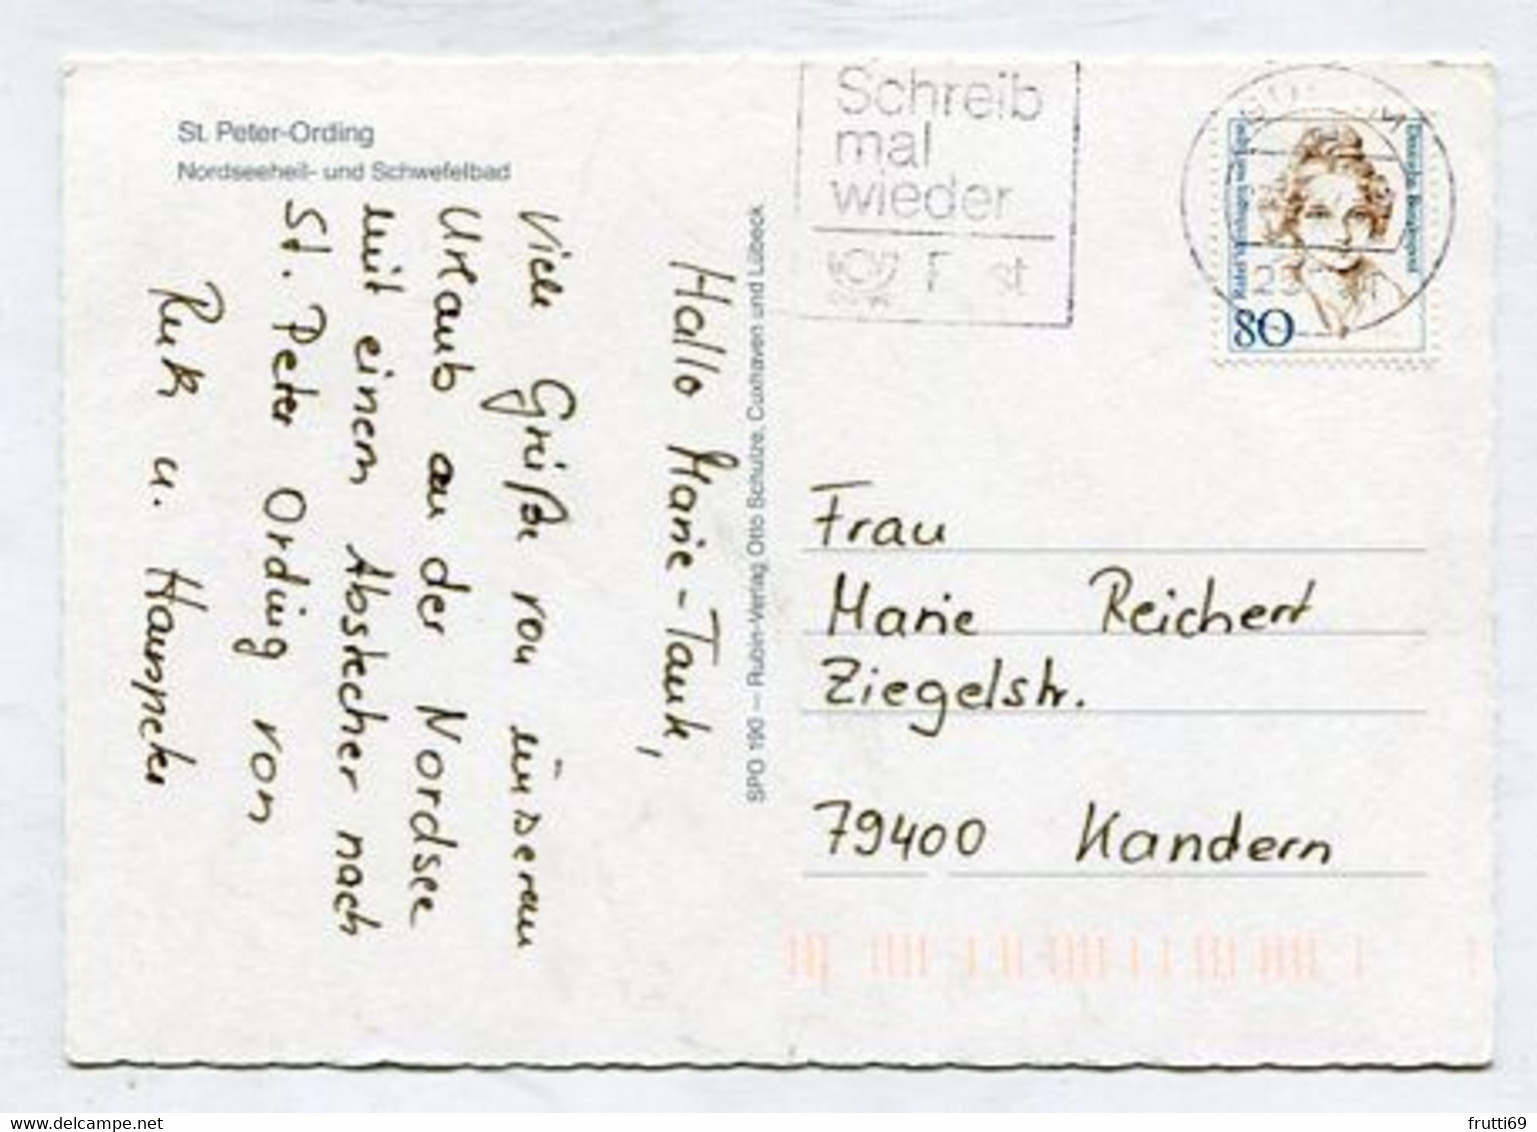 St. Peter-Ording
Nordseeheil- und Schwefelbad
Hallo Marie-Tank,
Viele Grüße von unserem
Urlaub an der Nordsee
mit einem Abstecher nach
St. Peter Ording von
u. Hanspeter
SPO 190 — Rubin-Verlag Otto Schulze, Cuxhaven und Lübeck
Schreib
mal
wieder
Deutsche Bundespost
80
23
Frau
Marie Reichert
Ziegelstr.
79400 Kandern
www.delcampe.net
frutti69